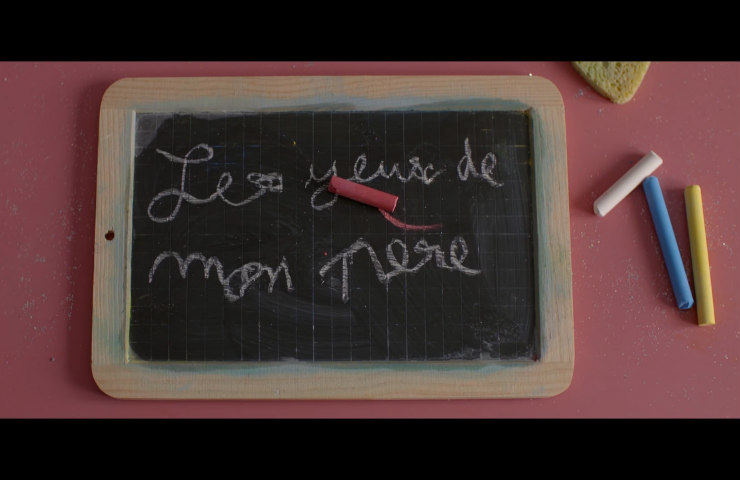 Les yeux de
mon père